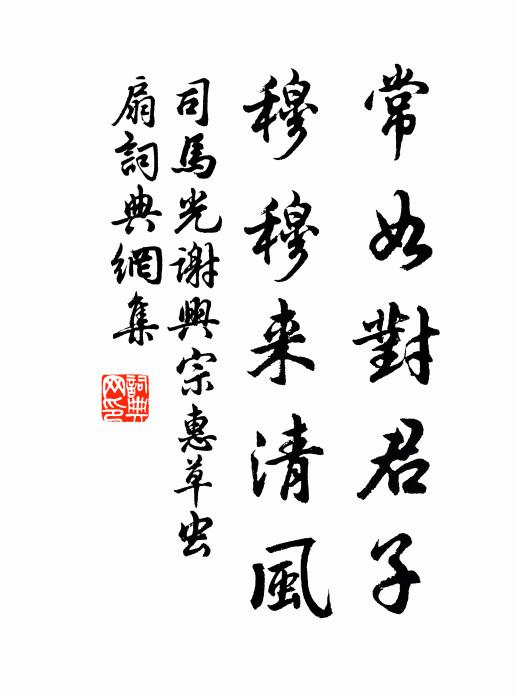 常如對君子
穆穆来清風
司馬光谢興宗惠草虫
扇詞典網集
詞典
网印